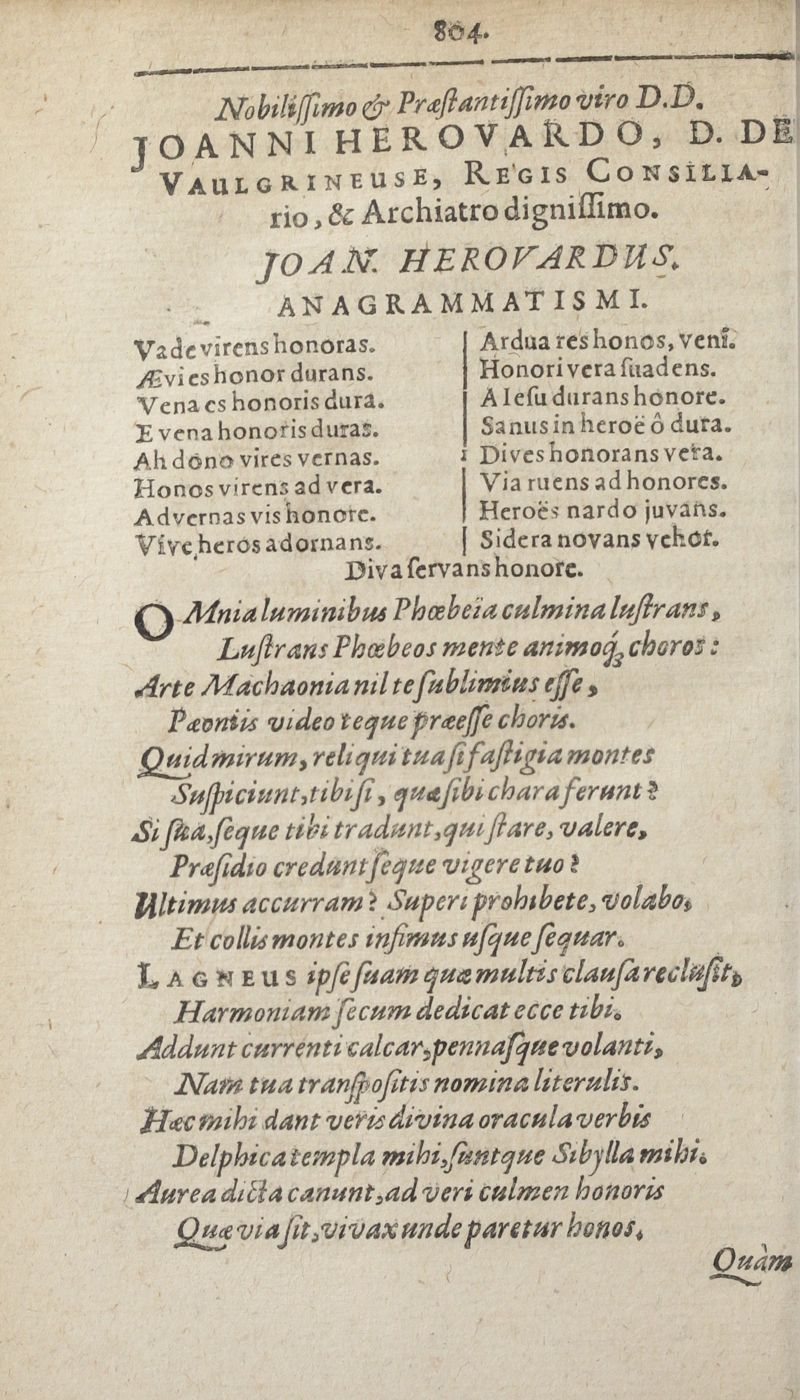 804.
Nobilißimo & Præstantißimo viro D.D.
JOANNI HEROVARDO, D. DE
VAULGRINEUSE, REGIS CONSILIA-
rio, & Archiatro dignissimo.
JOAN. HEROVARDUS.
ANAGRAMMATISMI.
Vade virens honoras.
Ævi es honor durans.
Vena es honoris dura.
E vena honoris duras.
Ah dono vires vernas.
Honos virens ad vera.
Ad vernas vis honore.
Vive, heros adornans.
Ardua res honos, veni.
Honori vera suadens.
A Iesu durans honore.
Sanus in heroë ô dura.
Dives honorans vera.
Via ruens ad honores.
Heroës nardo juvans.
Sidera novans vehor.
Diva servans honore.
OMnia luminibus Phœbeïa culmina lustrans,
Lustrans Phœbeos mente animoq́; choros:
Arte Machaonia nil te sublimius esse,
Pæoniis video teque præesse choris.
Quid mirum, reliqui tua si fastigia montes
Suspiciunt, tibi si, quæ sibi chara ferunt?
Si sua, seque tibi tradunt, qui stare, valere,
Præsidio credunt seque vigere tuo?
Ultimus accurram? Superi prohibete, volabo,
Et collis montes infimus usque sequar.
LAGNEUS ipse suam quæ multis clausa reclusit,
Harmoniam secum dedicat ecce tibi.
Addunt currenti calcar, pennasque volanti,
Nam tua transpositis nomina literulis.
Hæc mihi dant veris divina oracula verbis
Delphica templa mihi, suntque Sibylla mihi.
Aurea dicta canunt, ad veri culmen honoris
Quæ via sit, vivax unde paretur honos,
Quàm